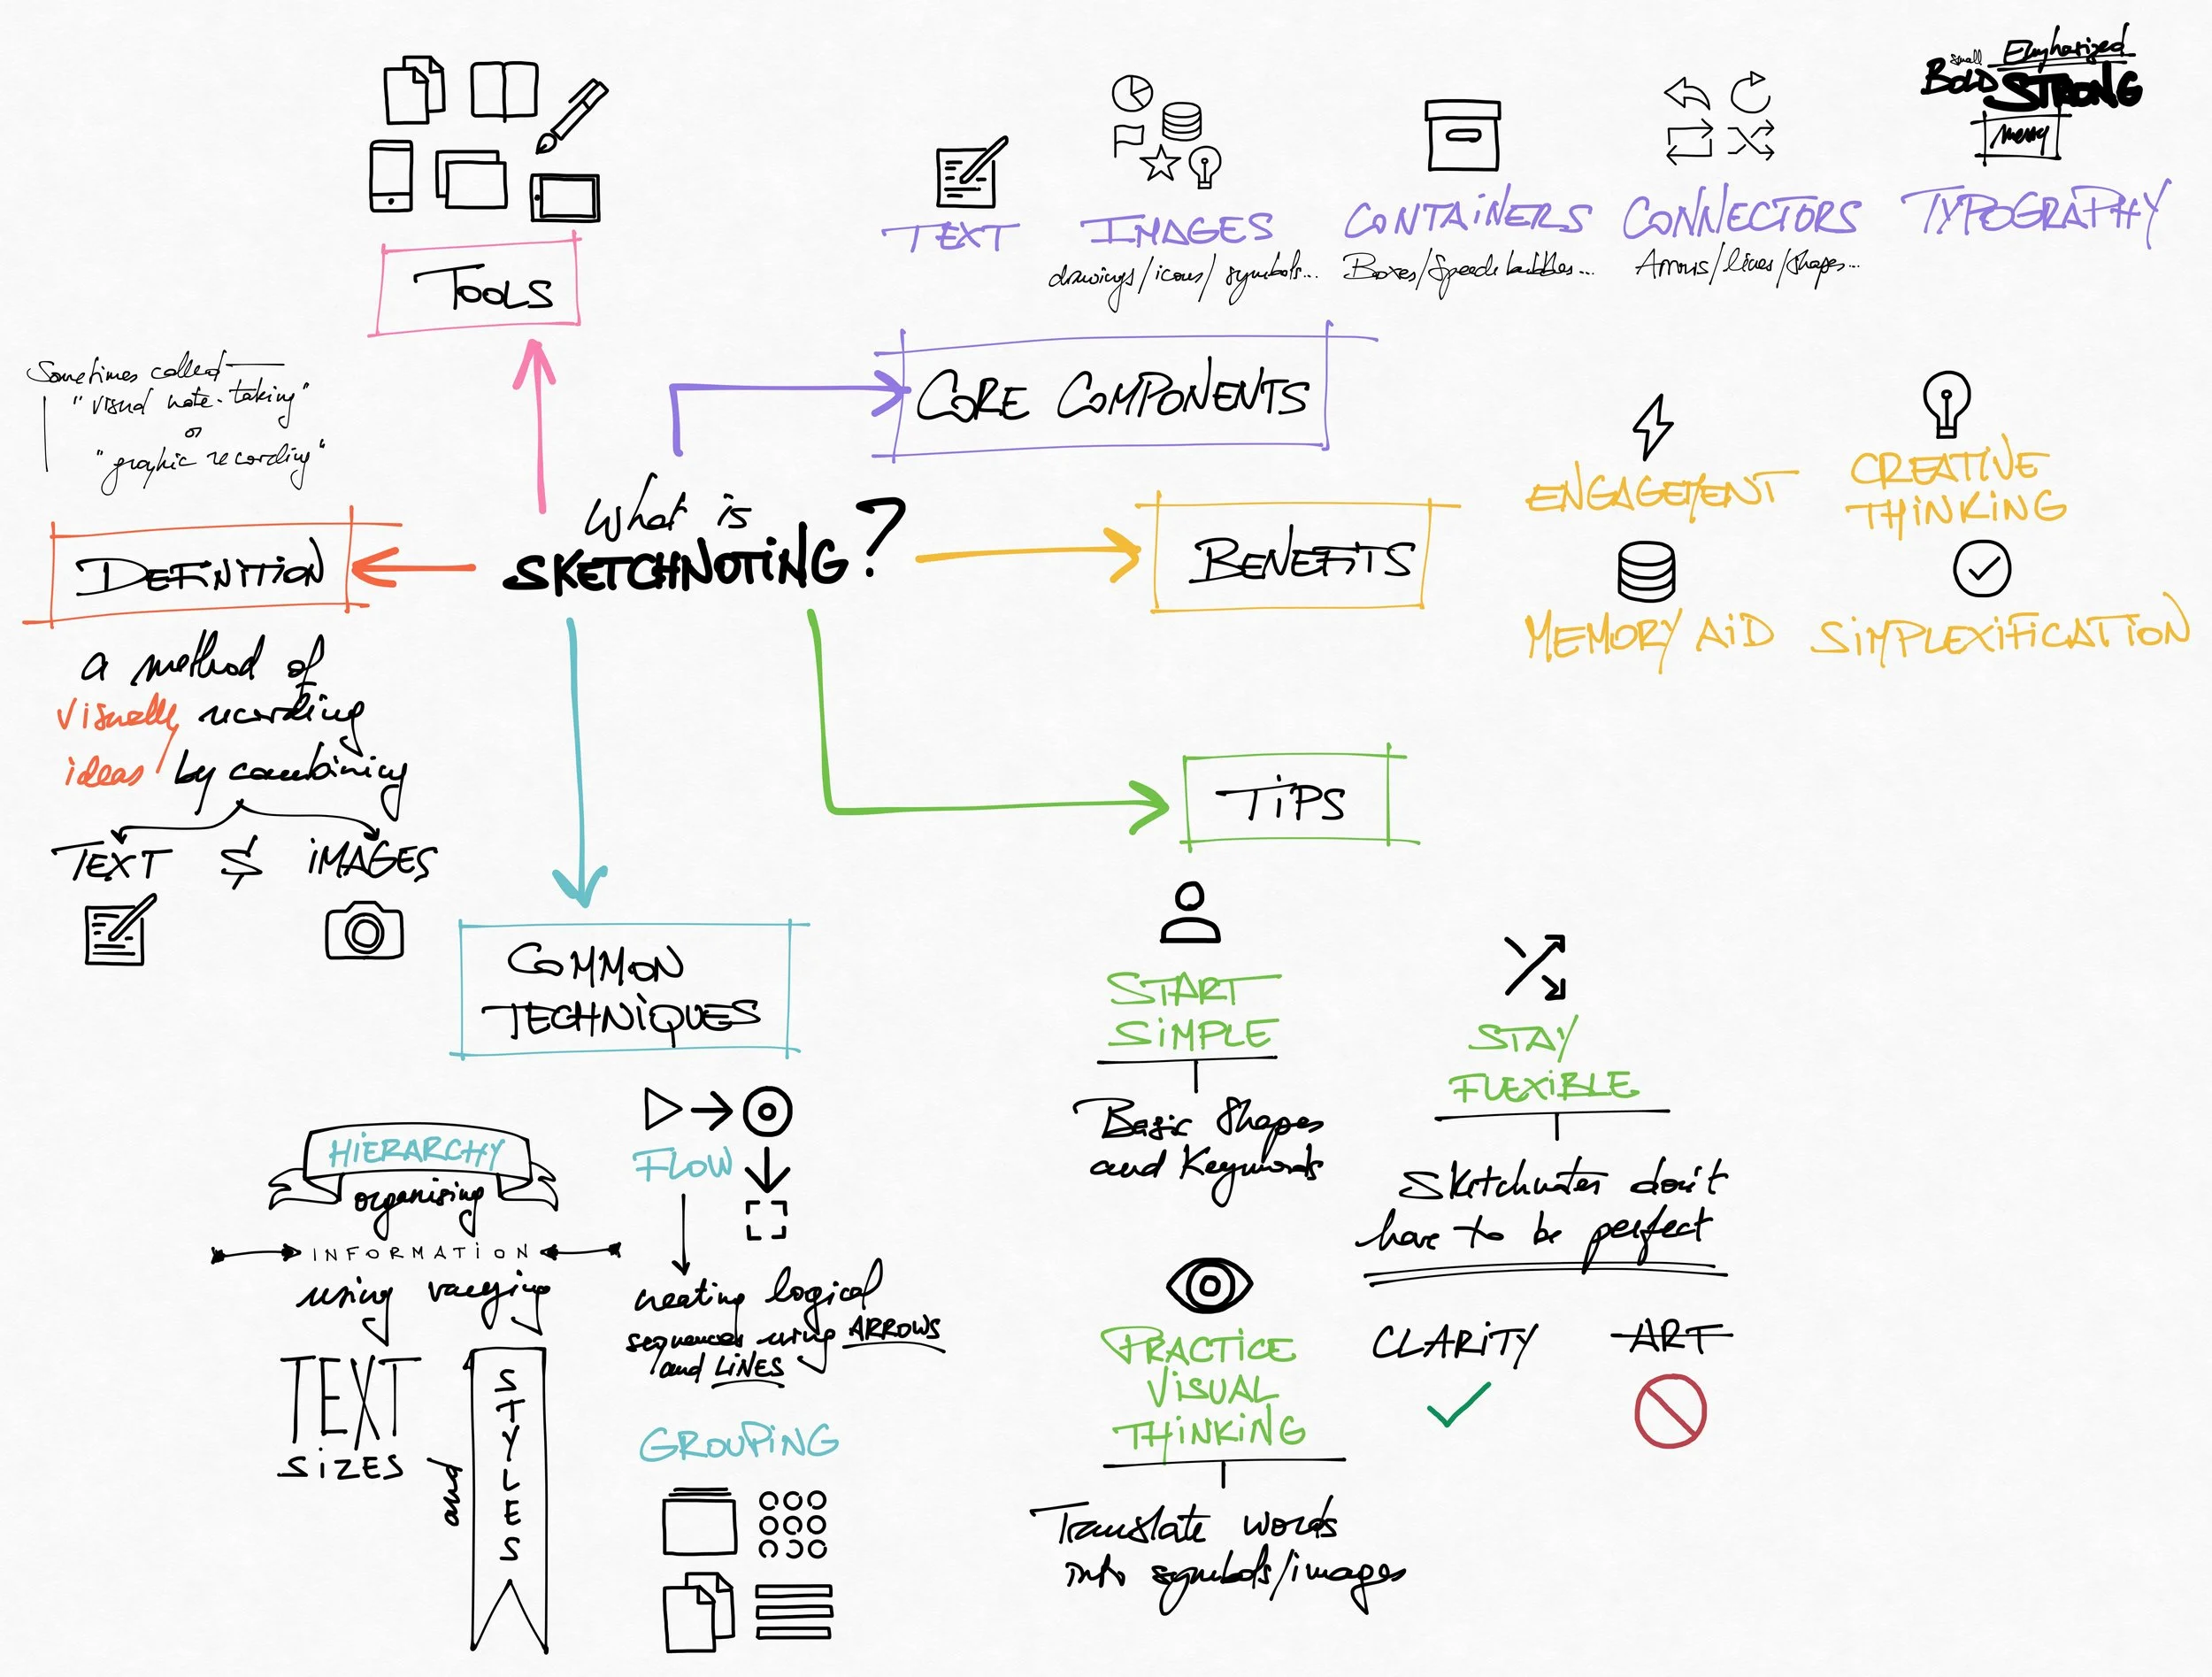 What is
SKETCHNOTING?
TOOLS
Sometimes called
"visual note-taking"
or
"graphic recording"
DEFINITION
a method of
visually recording
ideas by combining
TEXT & IMAGES
CORE COMPONENTS
TEXT
IMAGES
drawings/icons/symbols...
CONTAINERS
Boxes/Speech bubbles...
CONNECTORS
Arrows/lines/shapes...
small Emphasized
BOLD STRONG
TYPOGRAPHY
BENEFITS
ENGAGEMENT
CREATIVE
THINKING
MEMORY AID
SIMPLEXIFICATION
TIPS
START
SIMPLE
Basic Shapes
and Keywords
STAY
FLEXIBLE
Sketchnotes don't
have to be perfect
CLARITY
ART
PRACTICE
VISUAL
THINKING
Translate words
into symbols/images
COMMON
TECHNIQUES
HIERARCHY
organising
INFORMATION
using varying
TEXT
SIZES
and
STYLES
FLOW
creating logical
sequences using ARROWS
and LINES
GROUPING